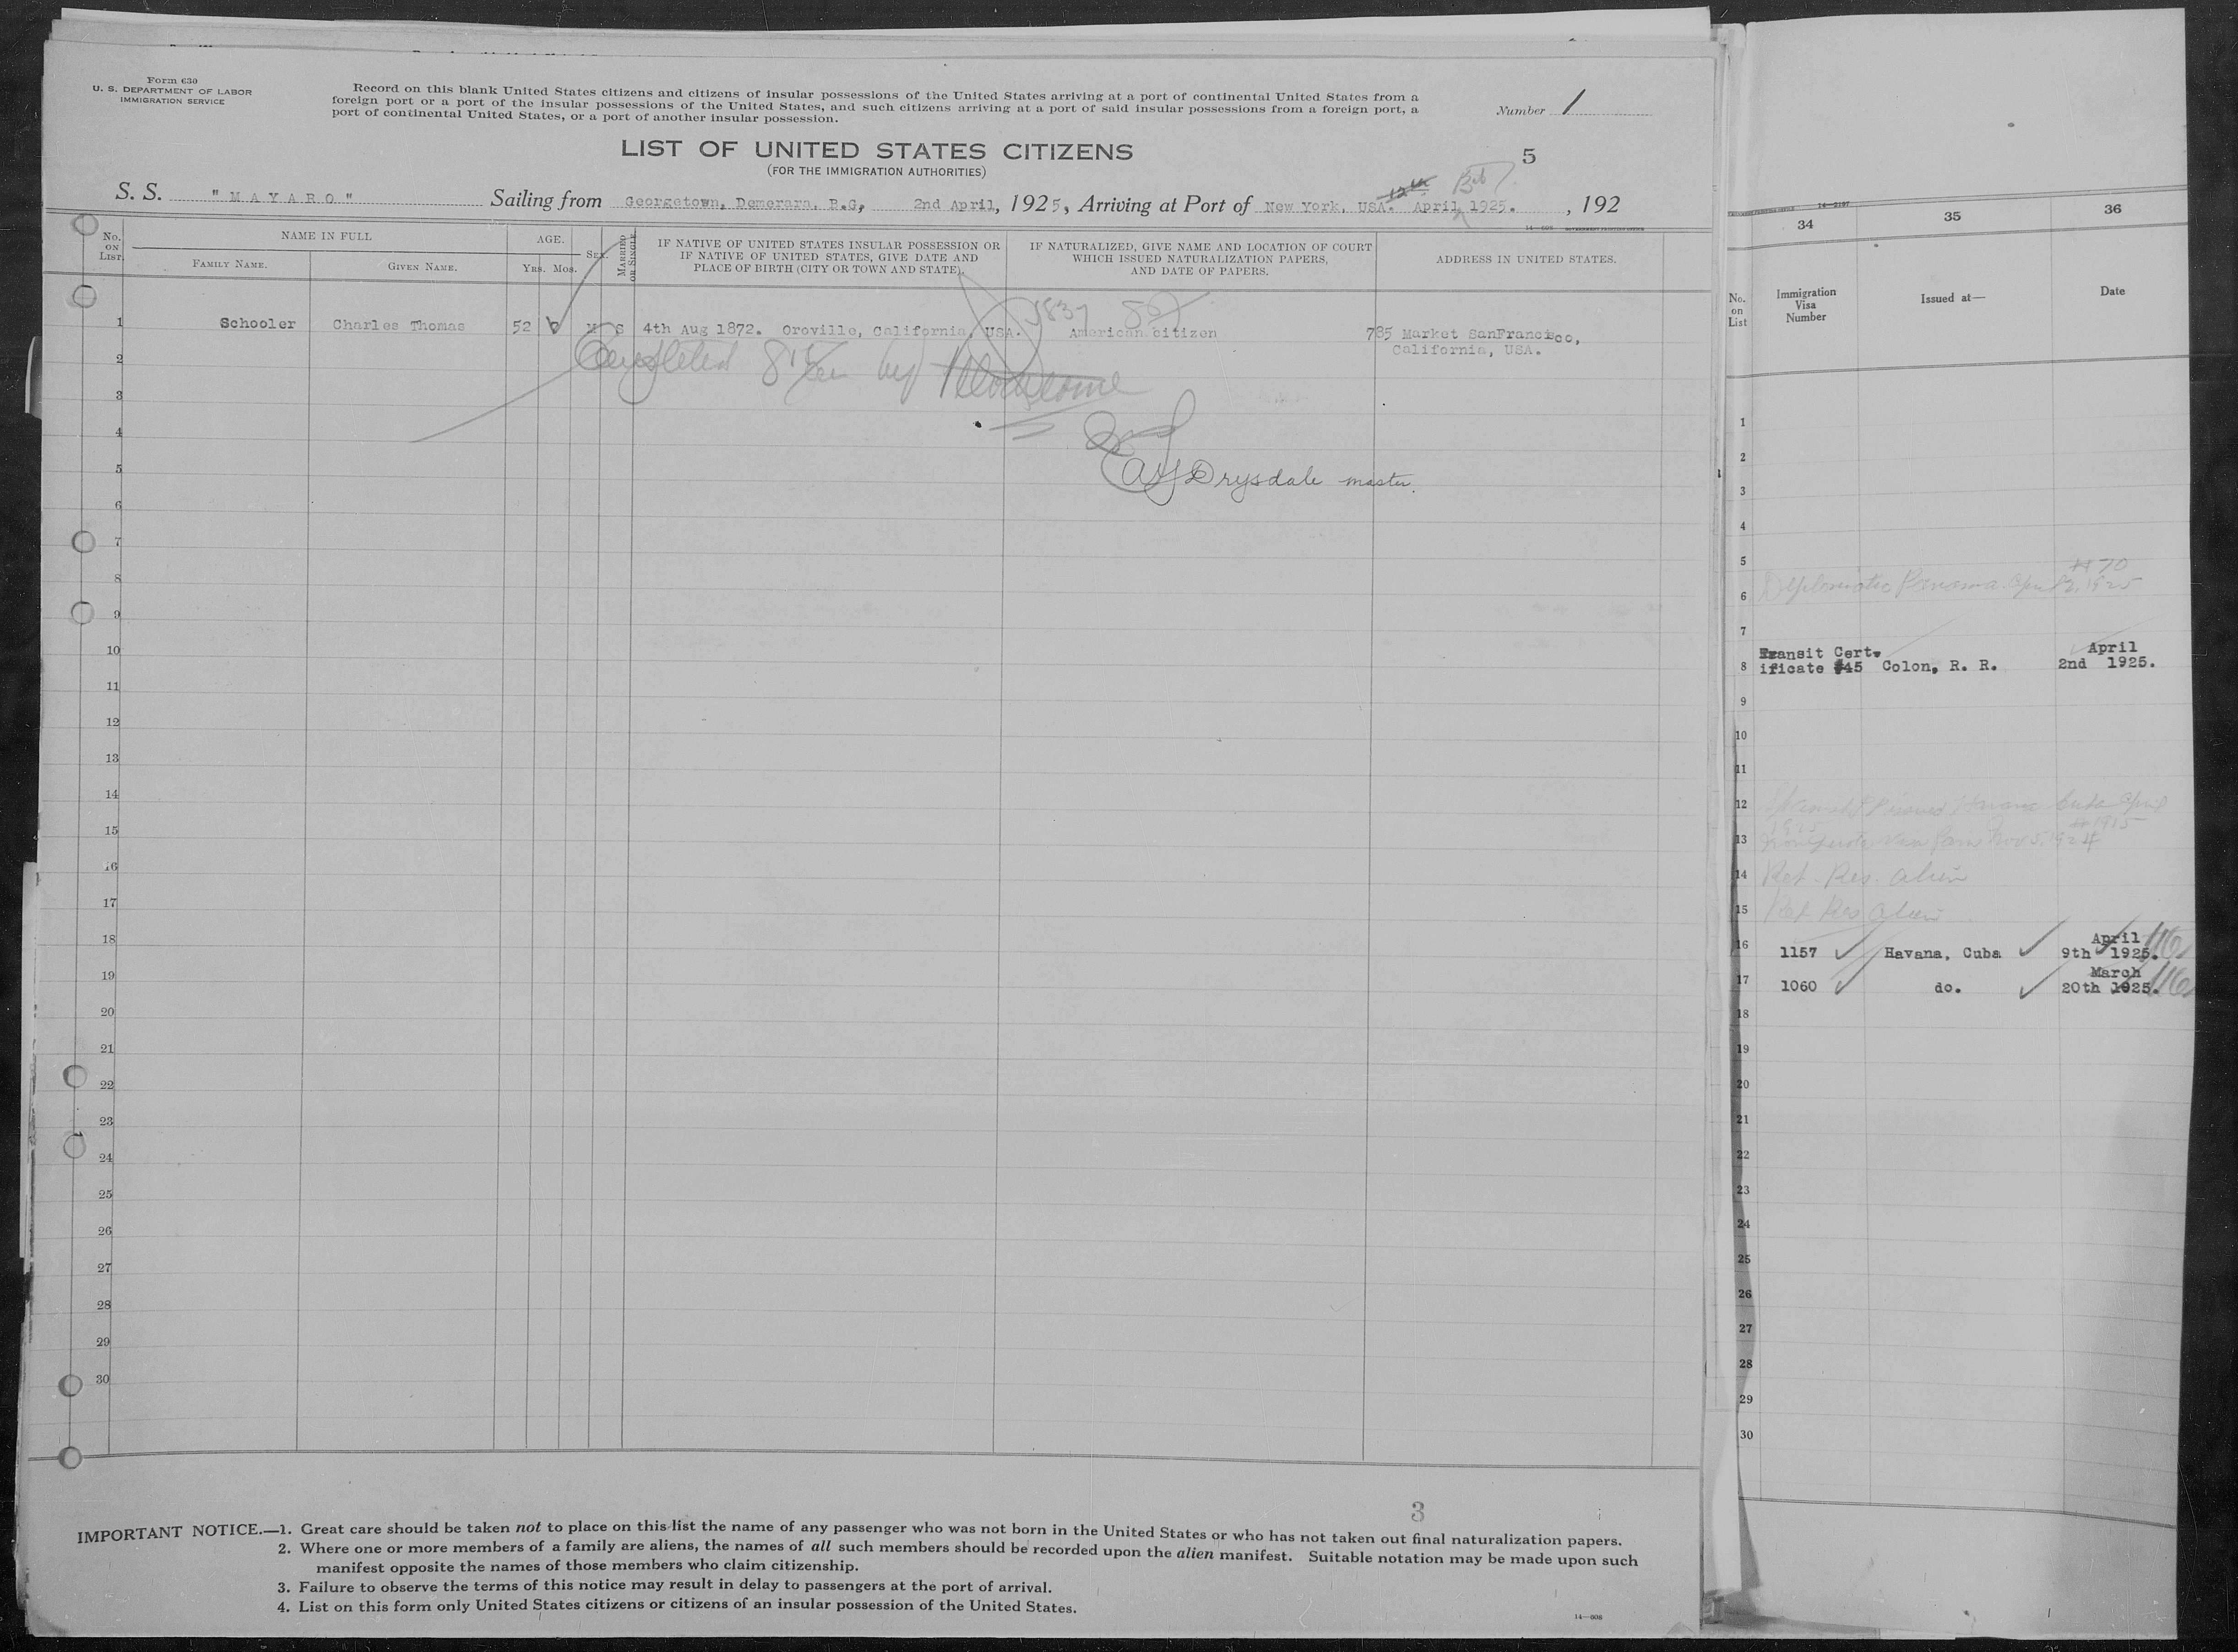 Form 630
U. S. DEPARTMENT OF LABOR
IMMIGRATION SERVICE
Record on this blank United States citizens and citizens of insular possessions of the United States arriving at a port of continental United States from a
foreign port or a port of the insular possessions of the United States, and such citizens arriving at a port of said insular possessions from a foreign port, a
port of continental United States, or a port of another insular possession.
Number 1
LIST OF UNITED STATES CITIZENS
(FOR THE IMMIGRATION AUTHORITIES)
5
12th
S. S. "MAYARO" Sailing from Georgetown, Demerara, B.G, 2nd April, 1925, Arriving at Port of New York, USA. April 1925. , 192
14—608 GOVERNMENT PRINTING OFFICE
No. on List.
NAME IN FULL
Family Name.
Given Name.
AGE.
Yrs. Mos.
Sex.
Married or Single
IF NATIVE OF UNITED STATES INSULAR POSSESSION OR
IF NATIVE OF UNITED STATES, GIVE DATE AND
PLACE OF BIRTH (CITY OR TOWN AND STATE).
IF NATURALIZED, GIVE NAME AND LOCATION OF COURT
WHICH ISSUED NATURALIZATION PAPERS,
AND DATE OF PAPERS.
ADDRESS IN UNITED STATES.
1 Schooler Charles Thomas 52 M S 4th Aug 1872. Oroville, California, USA. American citizen 785 Market SanFrancisco,
California, USA.
Completed by
Drysdale master.
2
3
4
5
6
7
8
9
10
11
12
13
14
15
16
17
18
19
20
21
22
23
24
25
26
27
28
29
30
3
IMPORTANT NOTICE.—1. Great care should be taken not to place on this list the name of any passenger who was not born in the United States or who has not taken out final naturalization papers.
2. Where one or more members of a family are aliens, the names of all such members should be recorded upon the alien manifest. Suitable notation may be made upon such
manifest opposite the names of those members who claim citizenship.
3. Failure to observe the terms of this notice may result in delay to passengers at the port of arrival.
4. List on this form only United States citizens or citizens of an insular possession of the United States.
14—608
14—2197
34 35 36
No. on List
Immigration Visa Number
Issued at—
Date
1
2
3
4
5
#70
6 Diplomatic Panama April 2, 1925
7
Transit Cert. April
8 ificate #45 Colon, R. R. 2nd 1925.
9
10
11
12
13
14 Ret. Res. alien
15 Ret Res alien
April
16 1157 Havana, Cuba 9th 1925.
March
17 1060 do. 20th 1925.
18
19
20
21
22
23
24
25
26
27
28
29
30